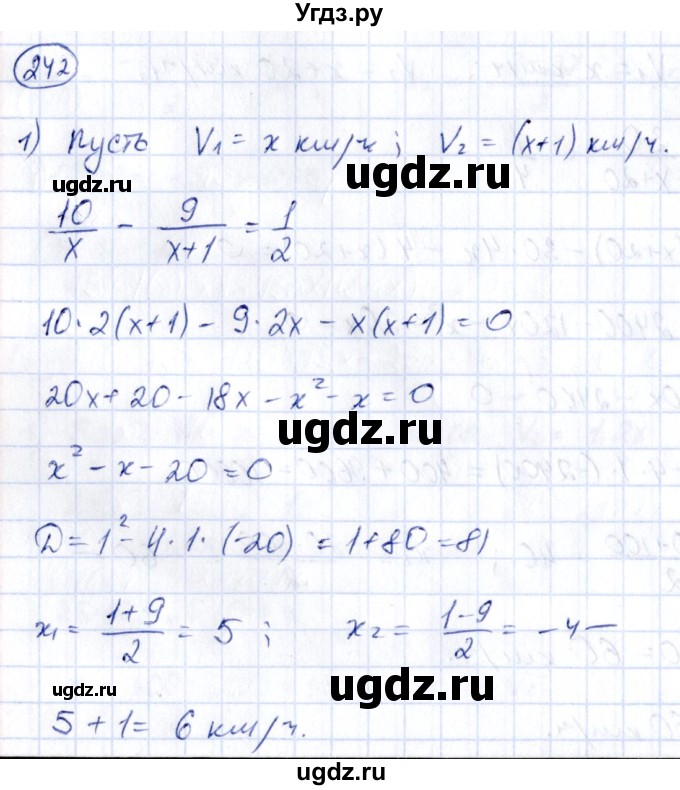 Угдз.ру
242
1) Пусть V₁ = x км/ч; V₂ = (x+1) км/ч.
ugdz.ru ugdz.ru
10/x - 9/(x+1) = 1/2
10·2(x+1) - 9·2x - x(x+1) = 0
ugdz.ru
20x + 20 - 18x - x² - x = 0
ugdz.ru
x² - x - 20 = 0
D = 1² - 4·1·(-20) = 1+80 = 81
ugdz.ru
x₁ = (1+9)/2 = 5; x₂ = (1-9)/2 = -4 —
ugdz.ru ugdz.ru
5 + 1 = 6 км/ч.
ugdz.ru